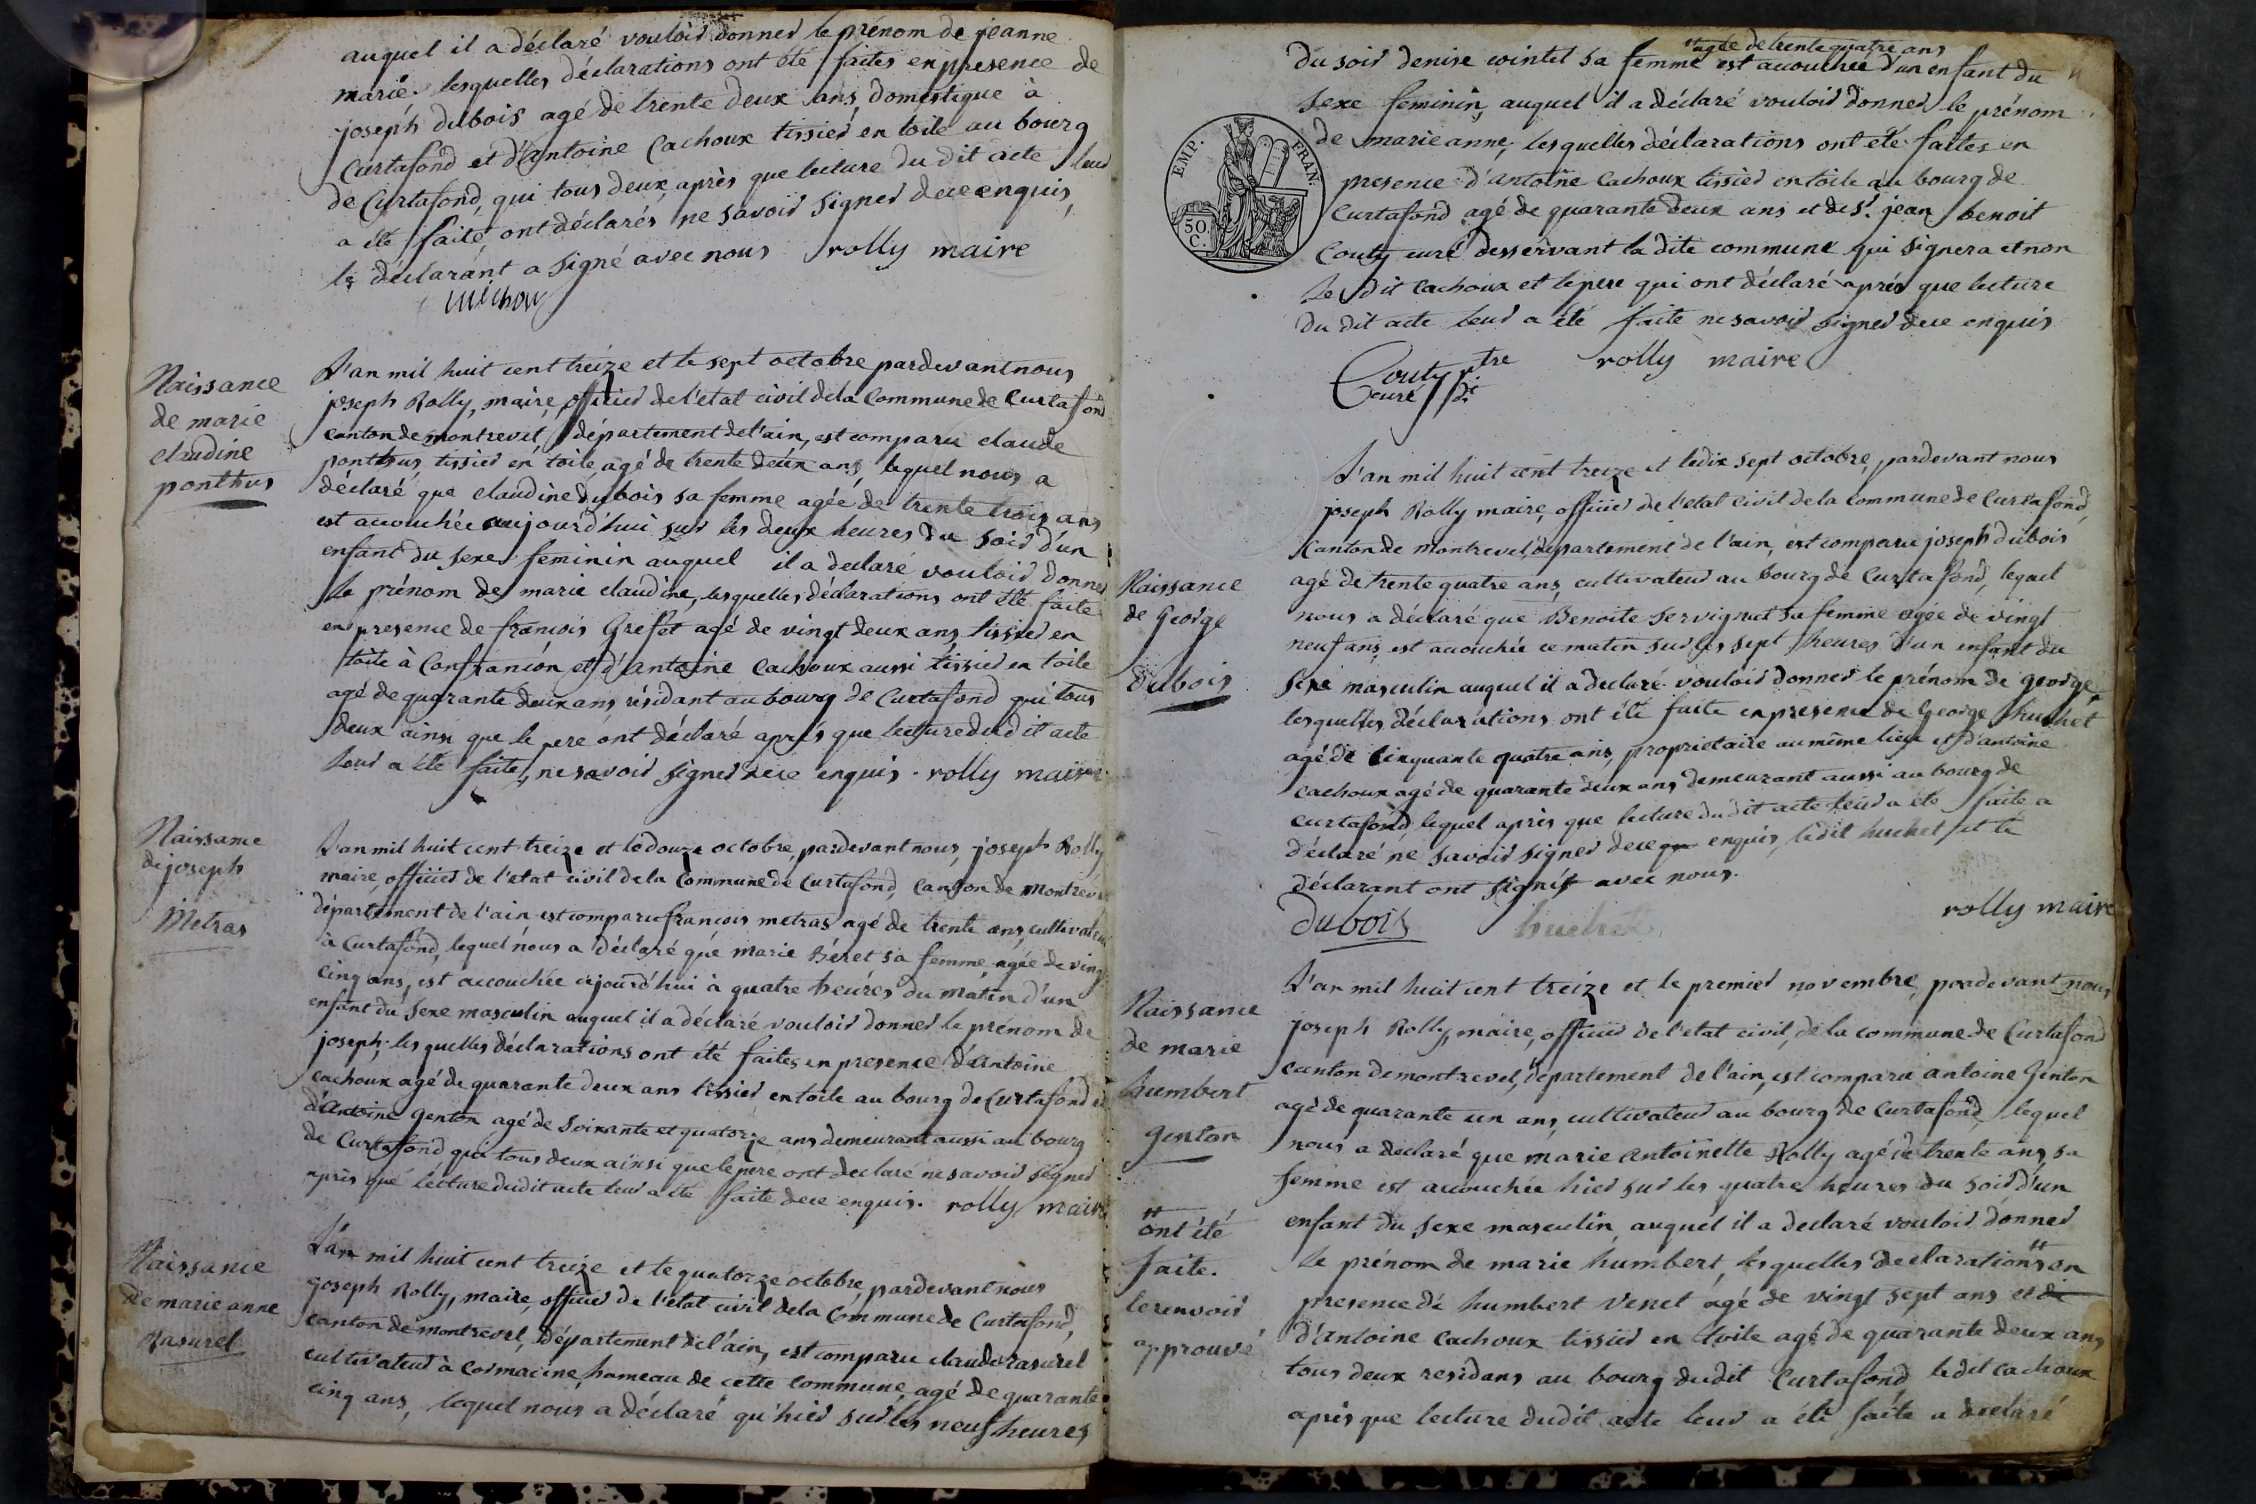 auquel il a déclaré vouloir donner le prénom de jeanne
marie. lesquelles déclarations ont été faites en presence de
joseph dubois agé de trente deux ans, domestique à
Curtafond et d'antoine Cachoux tissier en toile au bourg
de Curtafond, qui tous deux, après que lecture du dit acte leur
a été faite, ont déclarés ne savoir signer de ce enquis,
le déclarant a signé avec nous rolly maire
Naissance
de marie
claudine
ponthus
L'an mil huit cent treize et le sept octobre pardevant nous
joseph Rolly, maire, officier de l'etat civil de la Commune de Curtafond
canton de montrevel, département de l'ain, est comparu claude
ponthus tissier en toile, agé de trente deux ans, lequel nous a
déclaré que claudine dubois sa femme agée de trente trois ans
est accouchée aujourd'hui sur les deux heures du soir d'un
enfant du sexe feminin auquel il a declaré vouloir donner
le prénom de marie claudine, lesquelles déclarations ont été faite
en presence de françois Grefet agé de vingt deux ans, tissier en
toile à Confrançon et d'antoine Cachoux aussi tissier en toile
agé de quarante deux ans résidant au bourg de Curtafond qui tous
deux ainsi que le pere ont déclaré après que lecture dudit acte
leur a été faite, ne savoir signer de ce enquis. rolly maire
Naissance
de joseph
Metras
L'an mil huit cent treize et le douze octobre, pardevant nous, joseph Rolly
maire, officier de l'etat civil de la Commune de Curtafond, Canton de montrevel
département de l'ain est comparu françois metras agé de trente ans, cultivateur
à Curtafond, lequel nous a déclaré que marie Béret sa femme, agée de vingt
cinq ans, est accouchée ajourd'hui à quatre heures du matin d'un
enfant du sexe masculin auquel il a déclaré vouloir donner le prénom de
joseph, lesquelles déclarations ont été faites en presence d'antoine
cachoux agé de quarante deux ans tissier en toile au bourg de Curtafond et
d'antoine Genton agé de soixante et quatorze ans demeurant aussi au bourg
de Curtafond qui tous deux ainsi que le pere ont declaré ne savoir signer
après que lecture dudit acte leur a été faite de ce enquis. rolly maire
Naissance
de marie anne
Rasurel
L'an mil huit cent treize et le quatorze octobre, pardevant nous
joseph Rolly, maire, officier de l'etat civil de la Commune de Curtafond,
canton de montrevel, département de l'ain, est comparu claude rasurel
cultivateur à Cormacine, hameau de cette commune, agé de quarante
cinq ans, lequel nous a déclaré qu'hier sur les neuf heures
agée de trente quatre ans
du soir denise cointet sa femme est accouchée d'un enfant du
sexe feminin, auquel il a déclaré vouloir donner le prénom
de marie anne, lesquelles déclarations ont été faites en
presence d'antoine Cachoux tissier en toile au bourg de
Curtafond agé de quarante deux ans et de Sr. jean benoit
Couty curé desservant la dite commune qui signera et non
le dit Cachoux et le pere qui ont déclaré après que lecture
du dit acte leur a été faite ne savoir signer de ce enquis
EMP. FRAN.
50.
C.
Couty ptre rolly maire
curé
Naissance
de George
dubois
L'an mil huit cent treize et le dix sept octobre, pardevant nous
joseph Rolly maire, officier de l'etat civil de la Commune de Curtafond,
Canton de montrevel, département de l'ain, est comparu joseph dubois
agé de trente quatre ans, cultivateur au bourg de Curtafond, lequel
nous a déclaré que Benoite Servignat sa femme agée de vingt
neuf ans, est accouchée ce matin sur les sept heures d'un enfant du
sexe masculin auquel il a declaré vouloir donner le prénom de george,
lesquelles déclarations ont été faite en presence de George huchet
agé de cinquante quatre ans, proprietaire au même lieu et d'antoine
Cachoux agé de quarante deux ans demeurant aussi au bourg de
curtafond, lequel après que lecture dudit acte leur a été faite a
déclaré ne savoir signer de ce enquis, ledit huchet et le
déclarant ont signés avec nous.
dubois huchet rolly maire
Naissance
de marie
humbert
genton
L'an mil huit cent treize et le premier novembre, pardevant nous
joseph Rolly, maire, officier de l'etat civil, de la commune de Curtafond
canton de montrevel, département de l'ain, est comparu antoine Genton
agé de quarante un ans, cultivateur au bourg de Curtafond, lequel
nous a declaré que marie antoinette Rolly agée de trente ans, sa
femme est accouchée hier sur les quatre heures du soir d'un
enfant du sexe masculin, auquel il a declaré vouloir donner
le prénom de marie humbert, lesquelles declarations en
presence de humbert Venet agé de vingt sept ans et de
d'antoine Cachoux tissier en toile agé de quarante deux ans
tous deux residans au bourg dudit Curtafond ledit cachoux
après que lecture dudit acte leur a été faite a declaré
ont été
faite.
le renvoir
approuvé